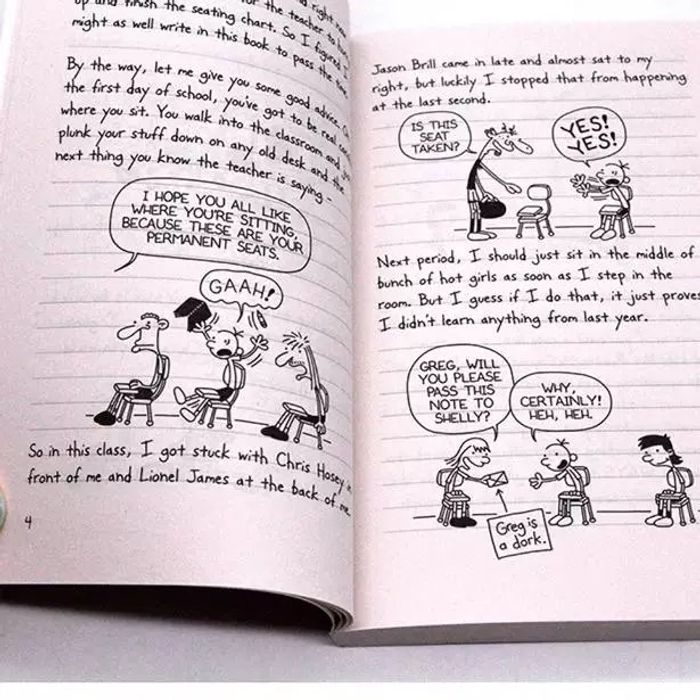 right now
for the teacher to
up and finish the seating chart. So I figured I
might as well write in this book to pass the time.
By the way, let me give you some good advice. On
the first day of school, you've got to be real
where you sit. You walk into the classroom and
plunk your stuff down on any old desk and the
next thing you know the teacher is saying -
I HOPE YOU ALL LIKE
WHERE YOU'RE SITTING,
BECAUSE THESE ARE YOUR
PERMANENT SEATS.
GAAH!
So in this class, I got stuck with Chris Hosey in
front of me and Lionel James at the back of me.
4
Jason Brill came in late and almost sat to my
right, but luckily I stopped that from happening
at the last second.
IS THIS
SEAT
TAKEN?
YES!
YES!
Next period, I should just sit in the middle of
bunch of hot girls as soon as I step in the
room. But I guess if I do that, it just proves
I didn't learn anything from last year.
GREG, WILL
YOU PLEASE
PASS THIS
NOTE TO
SHELLY?
WHY,
CERTAINLY!
HEH, HEH.
Greg is
a dork.